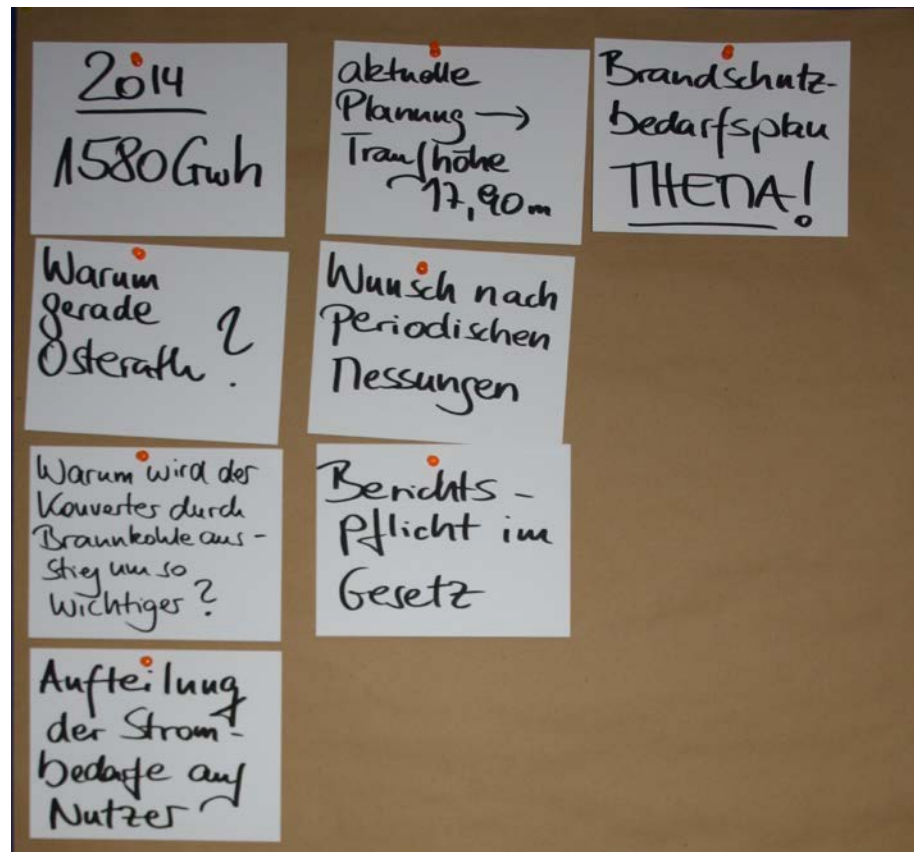 2014
1580 Gwh
Warum
gerade
Osterath?
Warum wird der
Konverter durch
Braunkohleaus-
stieg um so
wichtiger?
Aufteilung
der Strom-
bedarfe auf
Nutzer
aktuelle
Planung →
Traufhöhe
~17,90m
Wunsch nach
periodischen
Messungen
Berichts-
pflicht im
Gesetz
Brandschutz-
bedarfsplan
THEMA!